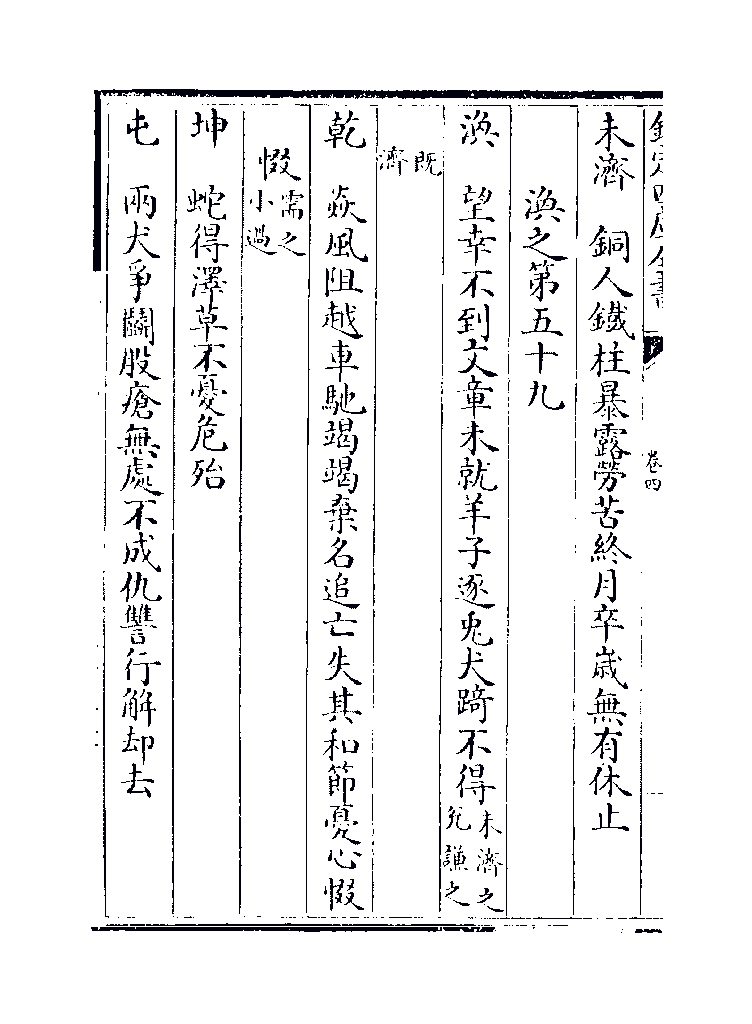 欽定四庫全書 卷四
未濟 銅人鐵柱暴露勞苦終月卒歲無有休止
渙之第五十九
渙 望幸不到文章未就羊子逐兎犬踦不得未濟之兊謙之
既濟
乾 焱風阻越車馳竭竭棄名追亡失其和節憂心惙
惙需之小過
坤 蛇得澤草不憂危殆
屯 兩犬爭鬭股瘡無處不成仇讐行解却去